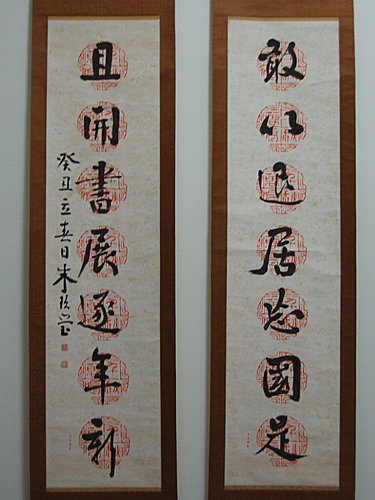 敢以退居忘國是
且開書展逐年新
癸丑立春日朱玖瑩